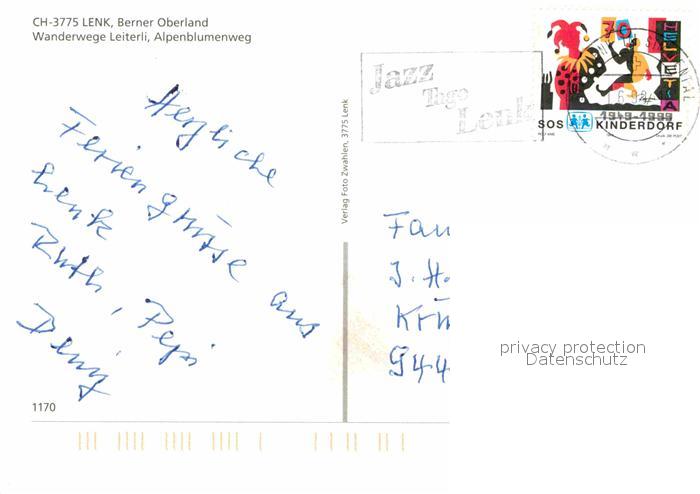 CH-3775 LENK, Berner Oberland
Wanderwege Leiterli, Alpenblumenweg
Jazz
Tage
Lenk
70
HELVETIA
1949-1999
SOS KINDERDORF
Herzliche
Feriengrüsse aus
Lenk
Ruth, Pepi
Verlag Foto Zwahlen, 3775 Lenk
Fam
J. H.
Krü
944
privacy protection
Datenschutz
1170